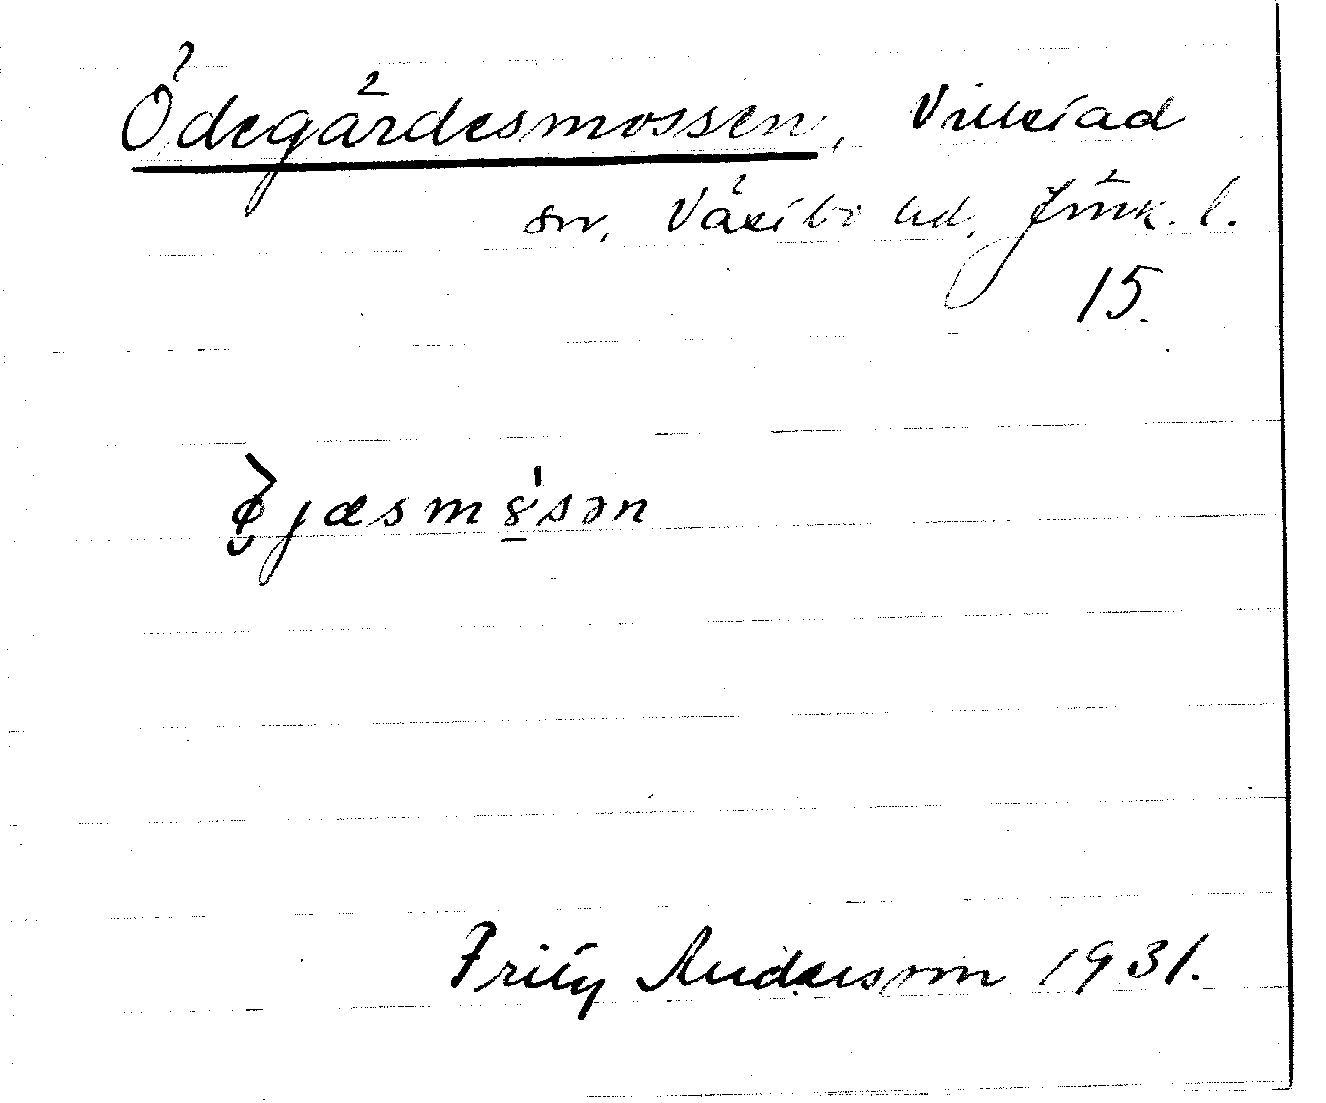 Ödegärdesmossen, Villstad
sn, Västbo hd, Jönk. l.
15.
Fritz Andersson 1931.